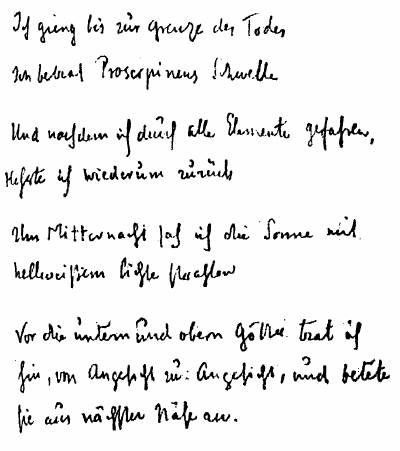 Ich gieng bis zur Grenze des Todes
Ich betrat Proserpinens Schwelle
Und nachdem ich durch alle Elemente gefahren,
Kehrte ich wiederum zurück
Um Mitternacht sah ich die Sonne mit
hellweißem Lichte strahlen
Vor die untern und obern Götter trat ich
hin, von Angesicht zu: Angesicht, und betete
sie aus nächster Nähe an.